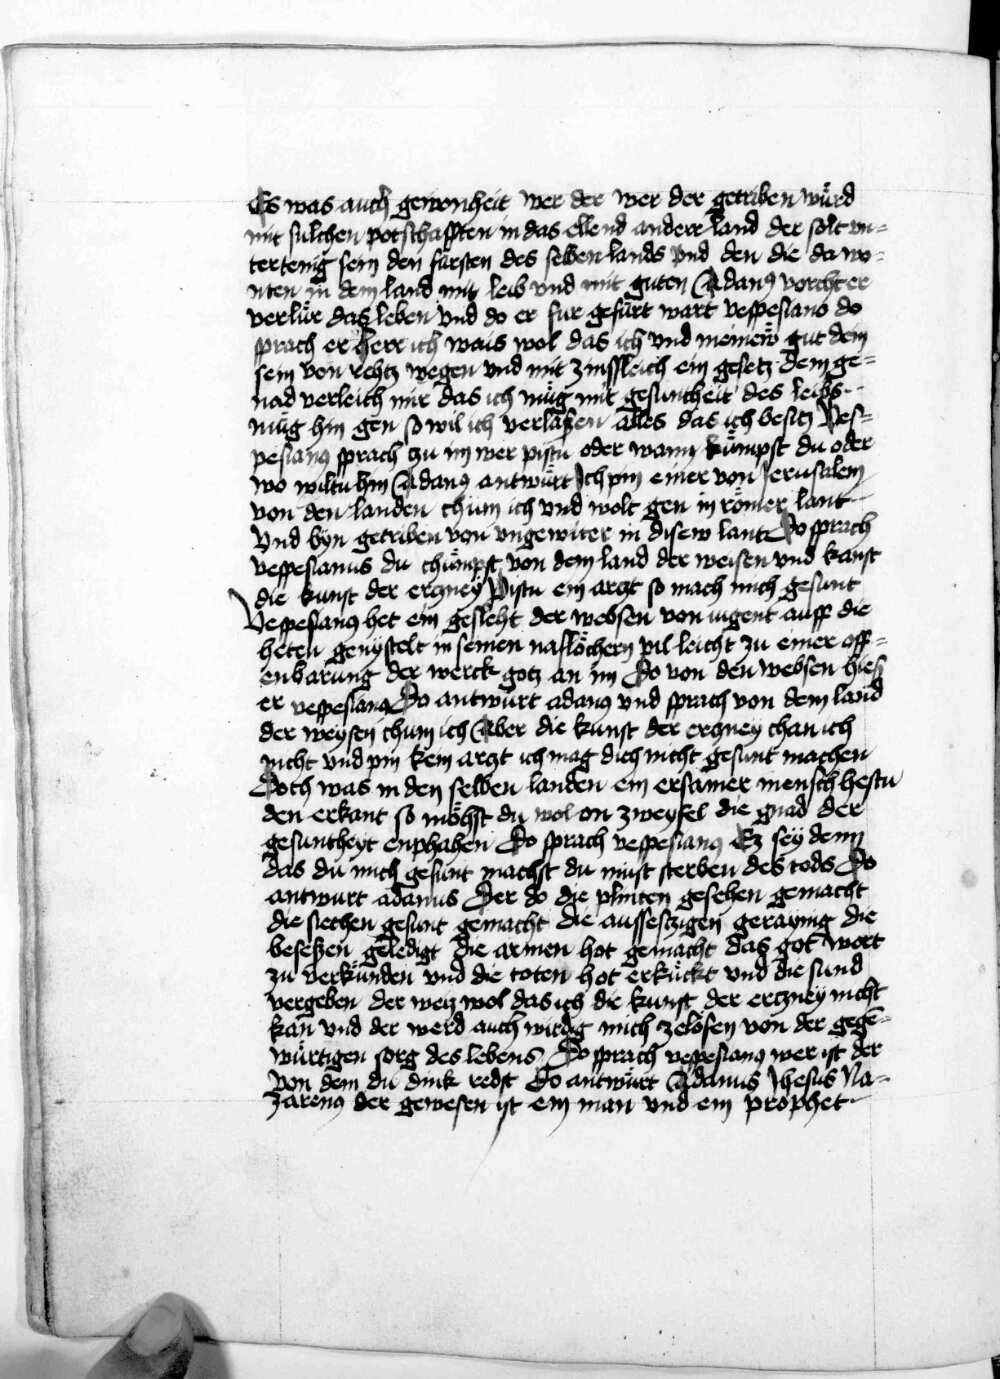 Es was auch gewonheit wer der wer der getriben würd
mit sulchen potschafften in das ellend anderr land der solt vn-
tertenig sein den fürsten des selben lands vnd den die da wo-
nten in dem land mit leib vnd mit guten Adanꝰ vorcht er
verlür das leben vnd do er fur gefürt wart vespesiano do
sprach er herr ich wais wol das ich vnd meinew gut dein
sein von rehtz wegen vnd mit zinsleich ein gesetz dein ge-
nad verleich mir das ich müg mit gesuntheit des leibs
müg hin gen so wil ich verlaßen alles das ich besitz Ves-
pesianꝰ sprach zu im wer pistu oder wann kümpst du oder
wo wiltu hin Adanꝰ antwürt Ich pin einer von Jerusalem
von den landen chum ich vnd wolt gen in römer lant
Vnd byn getriben von vngewiter in disew lant Do sprach
vespesianus du chümpst von dem land der weisen vnd kanst
die kunst der erczney Pistu ein arzt so mach mich gesunt
Vespesianꝰ het ein gesleht der websen von iugent auff die
heten genystelt in seinen naslöchern vil leicht zu einer off-
enbarung der werck gotz an im Do von den websen hies
er vespesianꝰ Do antwurt adanꝰ vnd sprach von dem land
der weysen chum ich Aber die kunst der erczney chan ich
nicht vnd pin kein arzt ich mag dich nicht gesunt machen
Doch was in den selben landen ein ersamer mensch hestu
den erkant so möhst du wol on zweyfel die gnad der
gesuntheyt enphahen Do sprach vespesianꝰ Ez sey denn
das du mich gesunt machst du must sterben des tods Do
antwurt adanus Der do die plinten gesehen gemacht
die siechen gesunt gemacht die aussetzigen geraynig die
beseßen geledigt die armen hot gemacht das got wort
zu verkünden vnd die toten hot erkückt vnd die sund
vergeben der weiz wol das ich die kunst der erczney nicht
kan vnd der werd auch wirdig mich zelösen von der gege-
würtigen sorg des lebens Do sprach vespesianꝰ wer ist der
von dem du dink redst Do antwürt Adanus Jhesus Na-
zarenꝰ der gewesen ist ein man vnd ein prophet